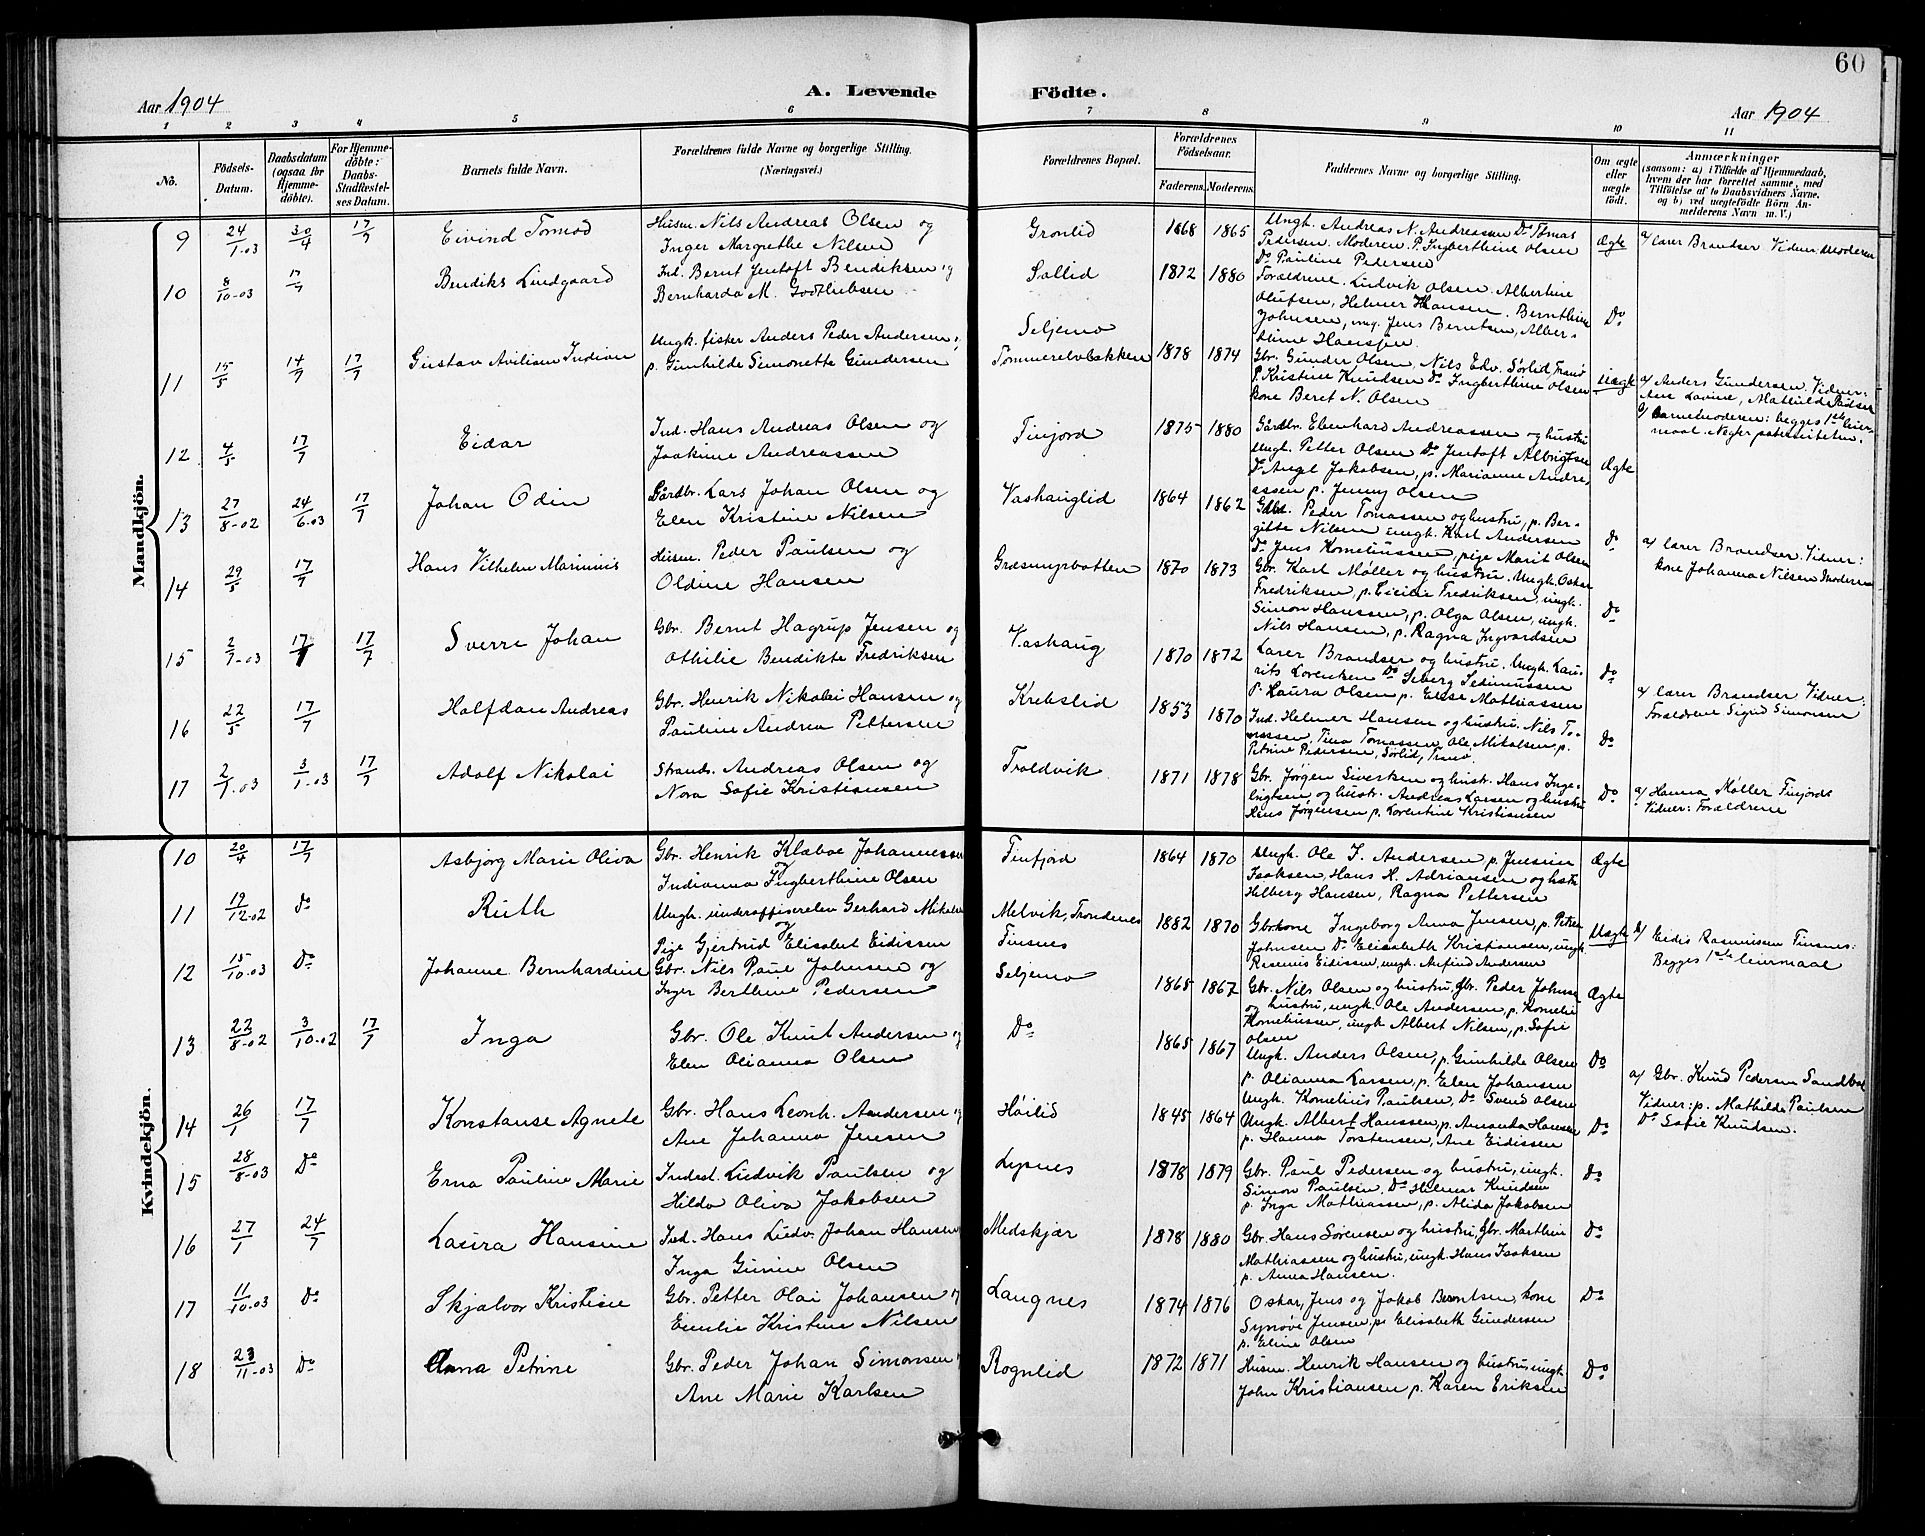 60
Aar 1904
A. Levende
Födte.
Aar 1904
1 2 3 4 5 6 7 8 9 10 11
No.
Födsels-Datum.
Daabsdatum (ogsaa for Hjemme-döbte).
For Hjemme-döbte: Daabs-Stadfæstel-ses Datum.
Barnets fulde Navn.
Forældrenes fulde Navne og borgerlige Stilling. (Næringsvei.)
Forældrenes Bopæl.
Forældrenes Födselsaar.
Faderens. Moderens.
Faddernes Navne og borgerlige Stilling.
Om ægte eller uægte födt.
Anmærkninger
(saasom: a) i Tilfælde af Hjemmedaab, hvem der har forrettet samme, med Tilföielse af to Daabsvidners Navne. og b) ved uægtefödte Börn An-melderens Navn m. V.)
Mandkjön.
9 24/1.03 30/4 17/7 Eivind Tormod
Husm. Nils Andreas Olsen og
Inger Margrethe Nilsen
Grønlid 1868 1865
Ungk. Andreas N. Andreassen Do Tomas
Pedersen. Moderen. P. Ingberthine Olsen
Do Pauline Pedersen
Ægte
a/ Lærer Brandser Vidner: Moderen
10 8/10-03 17/7 Bendiks Lindgaard
Ind. Bernt Jentoft Bendiksen og
Bernharda M. Godtliebsen
Sollid 1872 1880
Forældrene. Ludvik Olsen. Albertine
Olufsen, Helmer Hansen. Bernthine
Johnsen, ung. Jens Berntsen, Alber-
tine Hansen
Do
Seljemo
11 15/5 14/7 17/7 Gustav Avilian Indian
Ungk. fisker Anders Peder Andersen
p. Gunhilde Simonette Gundersen
Tømmerelvbakken 1878 1874
Gbr. Gunder Olsen, Nils Edv. Sørlid, Tranø
P. Kristine Knudsen Do Ingberthine Olsen
kone Beret N. Olsen
Uægte
a/ Anders Gundersen. Vidner:
Ane Lavine, Mathilde Paulsen
b/ Barnemoderen: begges 1ste leier-
maal. Negter paterniteten.
12 4/5 17/7 Eidar
Ind. Hans Andreas Olsen og
Joakime Andreassen
Finjord 1875 1880
Gårdbr. Ebenhard Andreassen og hustru
Ungk. Petter Olsen Do Jentoft Albrigtsen
Do Angel Jakobsen, p. Marianne Andre
assen p. Jenny Olsen
Ægte
13 27/8-02 24/6.03 17/7 Johan Odin
Gårdbr. Lars Johan Olsen og
Elen Kristine Nilsen
Vashauglid 1864 1862
Gbr. Peder Tomassen og hustru, p. Ber-
gitte Nilsen ungk. Karl Andersen
Do Jens Korneliussen, pige Marit Olsen
Do
a/ Lærer Brandser. Vidner:
kone Johanna Nilsen Moderen
14 29/5 17/7 Hans Vilhelm Marinius
Husm. Peder Paulsen og
Oldine Hansen
Græsmyrbotten 1870 1873
Gbr. Karl Møller og hustru. Ungk. Oskar
Fredriksen, p. Cicilie Fredriksen, ungk.
Simon Hanssen, p. Olga Olsen, ungk.
Nils Hansen, p. Ragna Ingvardsen
Do
15 2/7-03 17/7 17/7 Sverre Johan
Gbr. Bernt Hagrup Jensen og
Othilie Bendikte Fredriksen
Vashaug 1870 1872
Lærer Brandser og hustru. Ungk. Lau-
rits Lorentsen Do Seberg Sedeniussen
P. Laura Olsen p. Elise Mathiassen
Do
a/ Lærer Brandser Vidner:
Forældrene Sigrid Simonsen
16 22/5 17/7 Halfdan Andreas
Gbr. Henrik Nikolai Hansen og
Pauline Andrea Pettersen
Krebslid 1853 1870
Ind. Helmer Hansen og hustru. Nils To-
massen, Tina Tomassen, Ole Mikalsen, p.
Petrine Pedersen, Sørlid, Tranø
Do
17 2/1.03 3/1.03 17/7 Adolf Nikolai
Strands. Andreas Olsen og
Nora Sofie Kristiansen
Troldvik 1871 1878
Gbr. Jørgen Sivertsen og hustr. Hans Inge-
brigtsen og hustr. Andreas Larsen og hustru
Jens Jørgensen p. Lorentine Kristiansen
Do
a/ Hanna Møller Finjord
Vidner: Forældrene
Kvindekjön.
10 20/4 17/7 Asbjørg Marie Oliva
Gbr. Henrik Klæboe Johannessen
og
Indianna Ingberthine Olsen
Finfjord 1864 1870
Ungk. Ole I. Andersen, p. Jensine
Isaksen, Hans H. Adriansen og hstr
Hilberg Hansen, Ragna Pettersen
Ægte
11 19/12-02 Do Ruth
Ungk. underofficerelev Gerhard Mikalsen
og
Pige Gjertrud Elisabet Eidissen
Melvik, Trondenes
Finsnes
1882 1870
Gbrkone Ingeborg Anna Jensen, p. Petra
Johnsen Do Elisabeth Kristiansen, ungk.
Rasmus Eidissen, ungk. Arfind Andersen
Uægte
b/ Eidis Rasmussen Finsnes:
Begges 1ste leiermaal
12 15/10.03 Do Johanne Bernhardine
Gbr. Nils Paul Johnsen og
Inger Berthine Pedersen
Seljemo 1865 1867
Gbr. Nils Olsen og hustru, Gbr. Peder Johnsen
og hustru, ungk. Ole Andersen, p. Kornelie
Korneliussen, ungk. Albert Nilsen, p. Sofie
Olsen
Ægte
13 22/8-02 3/10-02 17/7 Inga
Gbr. Ole Knut Andersen og
Elen Olianna Olsen
Do 1865 1867
Ungk. Anders Olsen, p. Gunhilde Olsen
p. Olianna Larsen, p. Elen Johansen
Ungk. Kornelius Paulsen, Do Svend Olsen
Do
a/ Gbr. Knud Pedersen Sandbæk
Vidner: p. Mathilde Paulsen
Do Sofie Knudsen.
14 26/1 17/7 Konstanse Agnete
Gbr. Hans Leonh. Andersen og
Ane Johanna Jensen
Høilid 1845 1864
Ungk. Albert Hanssen, p. Amanda Hansen
p. Hanna Torstensen, Ane Eidissen
Do
15 28/8-03 Do Erna Pauline Marie
Inderst. Ludvik Paulsen og
Hilda Oliva Jakobsen
Lysnes 1878 1879
Gbr. Paul Pedersen og hustru, ungk.
Simon Paulsen, Do Helmer Knudsen
p. Inga Mathiassen, p. Alida Jakobsen
Do
16 27/1 24/7 Laura Hansine
Ind. Hans Ludv. Johan Hansen
Inga Gurine Olsen
Medskjær 1878 1880
Gbr. Hans Sørensen og hustru, Gbr. Marthin
Mathiassen og hustru, ungk. Hans Isaksen
p. Anna Hansen.
Do
17 11/10.03 Do Skjalvor Kristine
Gbr. Petter Olai Johansen og
Emilie Kristine Nilsen
Langnes 1874 1876
Oskar, Jens og Jakob Berntsen, kone
Synøve Jensen, p. Elisabeth Gundersen
p. Eline Olsen
Do
18 23/11-03 Do Anna Petrine
Gbr. Peder Johan Simonsen
Ane Marie Karlsen
Rognlid 1872 1871
Husm. Henrik Hansen og hustru, ungk.
John Kristiansen p. Karen Eriksen
Do